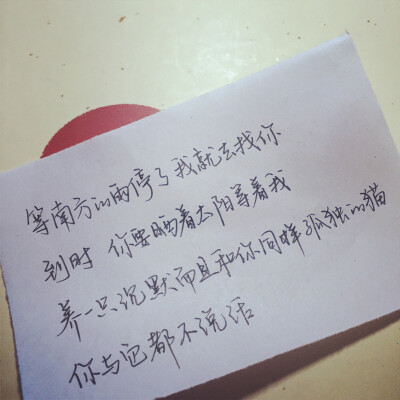 等南方的雨停了我就去找你
到时 你要晒着太阳等着我
养一只沉默而且和你同样孤独的猫
你与它都不说话